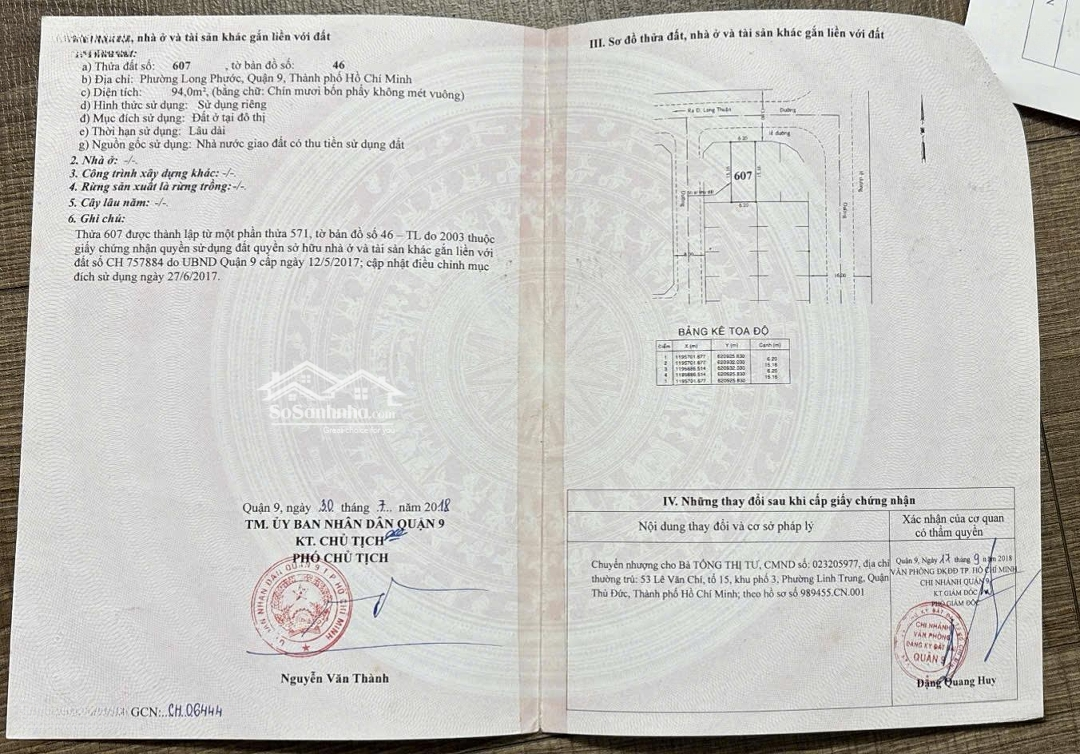 nhà ở và tài sản khác gắn liền với đất
a) Thửa đất số: 607 , tờ bản đồ số: 46
b) Địa chỉ: Phường Long Phước, Quận 9, Thành phố Hồ Chí Minh
c) Diện tích: 94,0m², (bằng chữ: Chín mươi bốn phẩy không mét vuông)
d) Hình thức sử dụng: Sử dụng riêng
đ) Mục đích sử dụng: Đất ở tại đô thị
e) Thời hạn sử dụng: Lâu dài
g) Nguồn gốc sử dụng: Nhà nước giao đất có thu tiền sử dụng đất
2. Nhà ở: -/-.
3. Công trình xây dựng khác: -/-.
4. Rừng sản xuất là rừng trồng:-/-.
5. Cây lâu năm: -/-.
6. Ghi chú:
Thửa 607 được thành lập từ một phần thửa 571, tờ bản đồ số 46 – TL đo 2003 thuộc
giấy chứng nhận quyền sử dụng đất quyền sở hữu nhà ở và tài sản khác gắn liền với
đất số CH 757884 do UBND Quận 9 cấp ngày 12/5/2017; cập nhật điều chỉnh mục
đích sử dụng ngày 27/6/2017.
SoSanhnha.com
Quận 9, ngày 30 tháng 7 năm 2018
TM. ỦY BAN NHÂN DÂN QUẬN 9
KT. CHỦ TỊCH
PHÓ CHỦ TỊCH
Nguyễn Văn Thành
GCN:..CH.06444
III. Sơ đồ thửa đất, nhà ở và tài sản khác gắn liền với đất
Ra Đ. Long Thuận
Đường
lề đường
6.20
15.16
15.16
607
6.20
Đường
Đường
lề đường
16.00
BẢNG KÊ TOẠ ĐỘ
Điểm X (m) Y (m) Cạnh (m)
1 1195701.677 620925.830
6.20
2 1195701.677 620932.030
15.16
3 1195686.514 620932.030
6.20
4 1195686.514 620925.830
15.16
1 1195701.677 620925.830
IV. Những thay đổi sau khi cấp giấy chứng nhận
Nội dung thay đổi và cơ sở pháp lý
Xác nhận của cơ quan
có thẩm quyền
Chuyển nhượng cho Bà TỐNG THỊ TƯ, CMND số: 023205977, địa chỉ
thường trú: 53 Lê Văn Chí, tổ 15, khu phố 3, Phường Linh Trung, Quận
Thủ Đức, Thành phố Hồ Chí Minh; theo hồ sơ số 989455.CN.001
Quận 9, Ngày 17 tháng 9 năm 2018
VĂN PHÒNG ĐKĐĐ TP. HỒ CHÍ MINH
CHI NHÁNH QUẬN 9
KT GIÁM ĐỐC
PHÓ GIÁM ĐỐC
CHI NHÁNH
VĂN PHÒNG
ĐĂNG KÝ ĐẤT ĐAI
QUẬN 9
Đặng Quang Huy